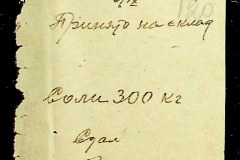 Принято на склад
Соли 300 кг
Сдал